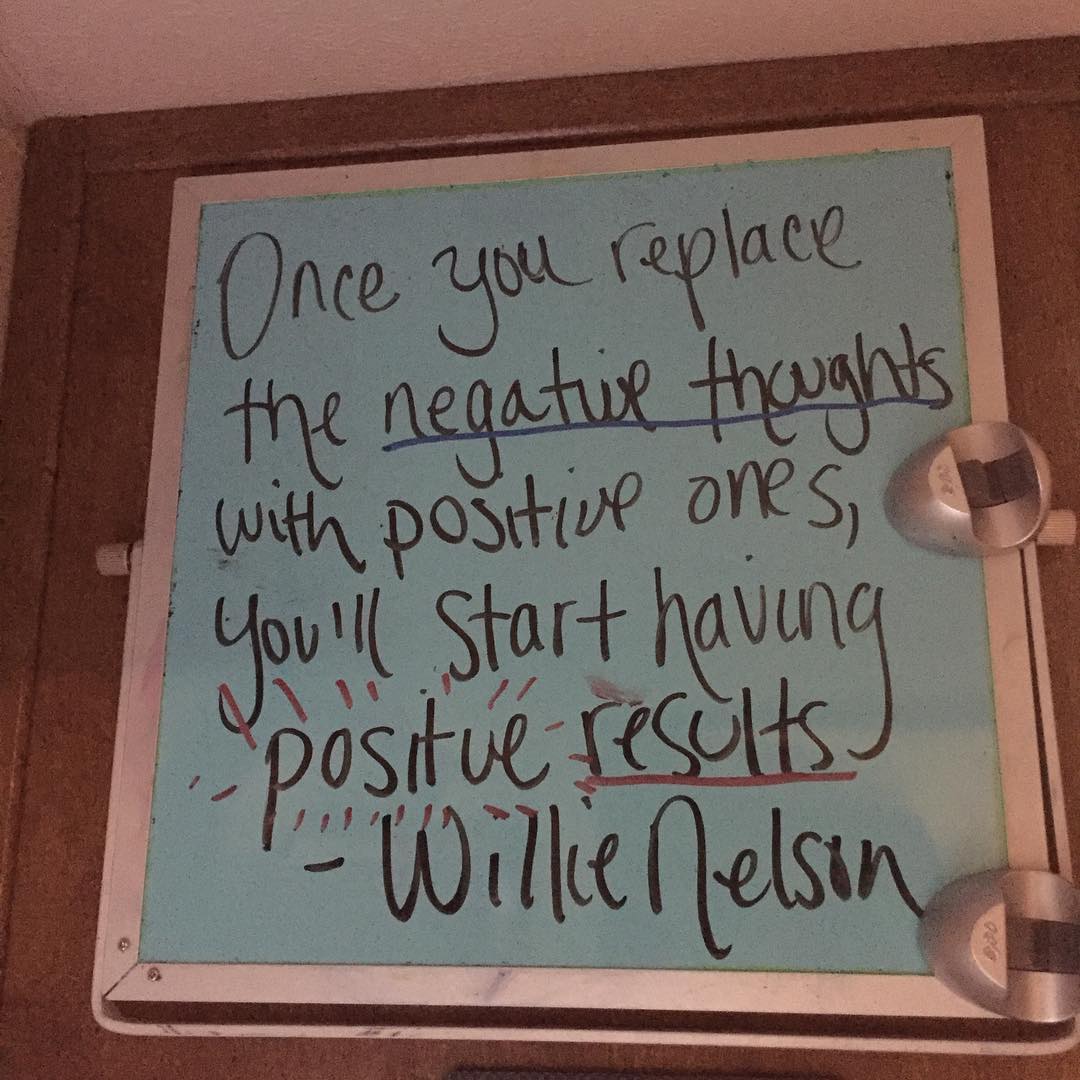 Once you replace
the negative thoughts
with positive ones,
you'll start having
positive results
- Willie Nelson